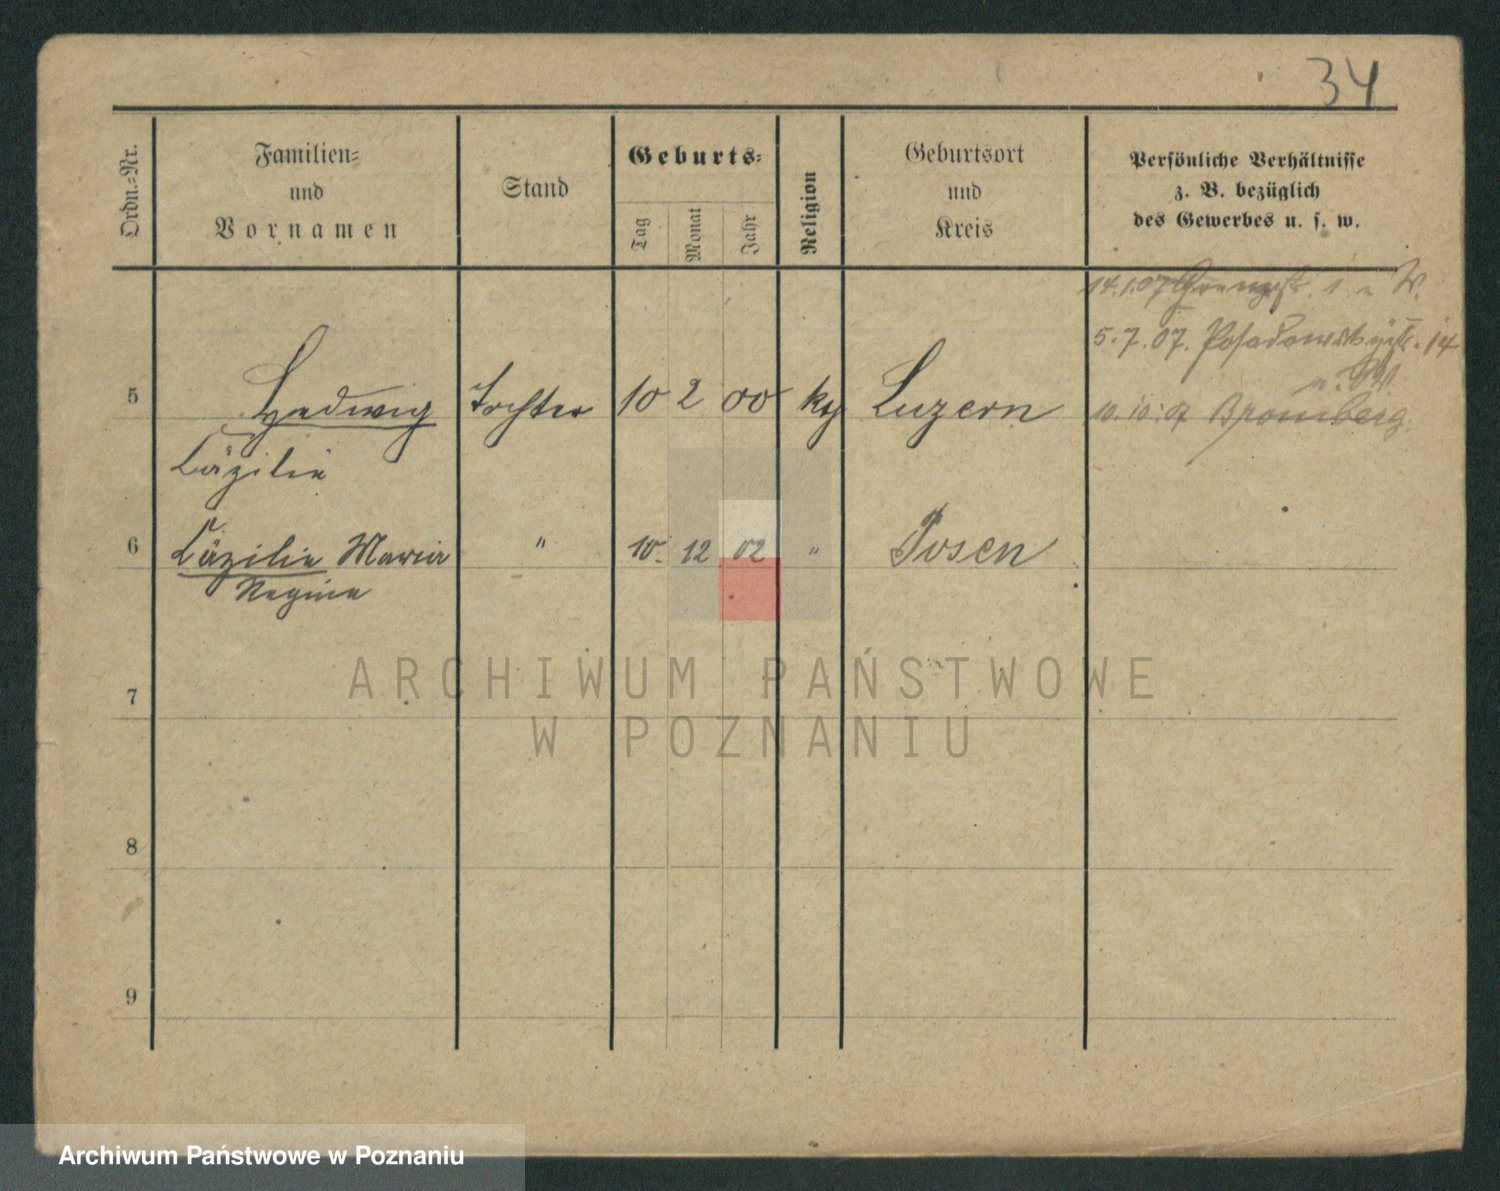 34
Ordn.-Nr.
Familien-
und
Vornamen
Stand
Geburts-
Tag
Monat
Jahr
Religion
Geburtsort
und
Kreis
Persönliche Verhältnisse
z. B. bezüglich
des Gewerbes u. s. w.
14.1.07
5.7.07. Posadowskystr. 14
5 Hedwig Tochter 10 2 00 kth Luzern
10.10.07 Bromberg.
Cäzilie
6 Cäzilie Maria " 10. 12 02 " Posen
Regina
7
8
9
ARCHIWUM PAŃSTWOWE
W POZNANIU
Archiwum Państwowe w Poznaniu